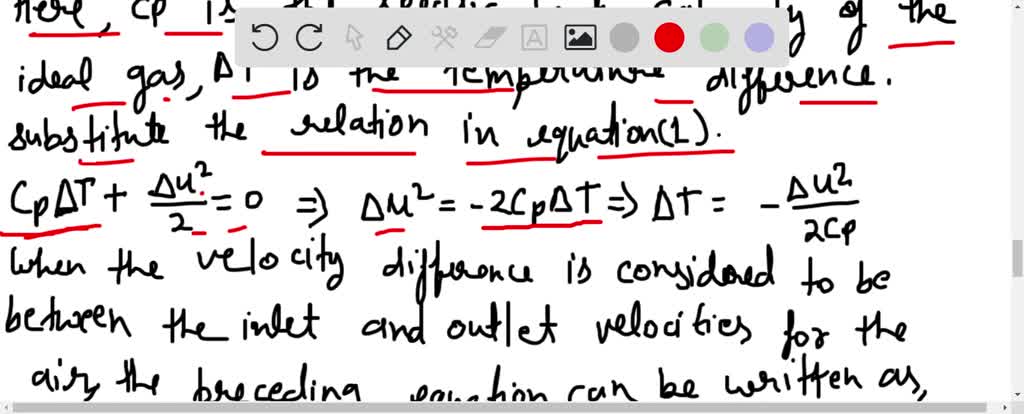 here, Cp is the specific heat of the
ideal gas, ΔT is the temperature difference.
substitute the relation in equation(1).
CpΔT + Δu²/2 = 0 ⇒ Δu² = -2CpΔT ⇒ ΔT = - Δu²/2Cp
When the velocity difference is considered to be
between the inlet and outlet velocities for the
air, the preceding equation can be written as,